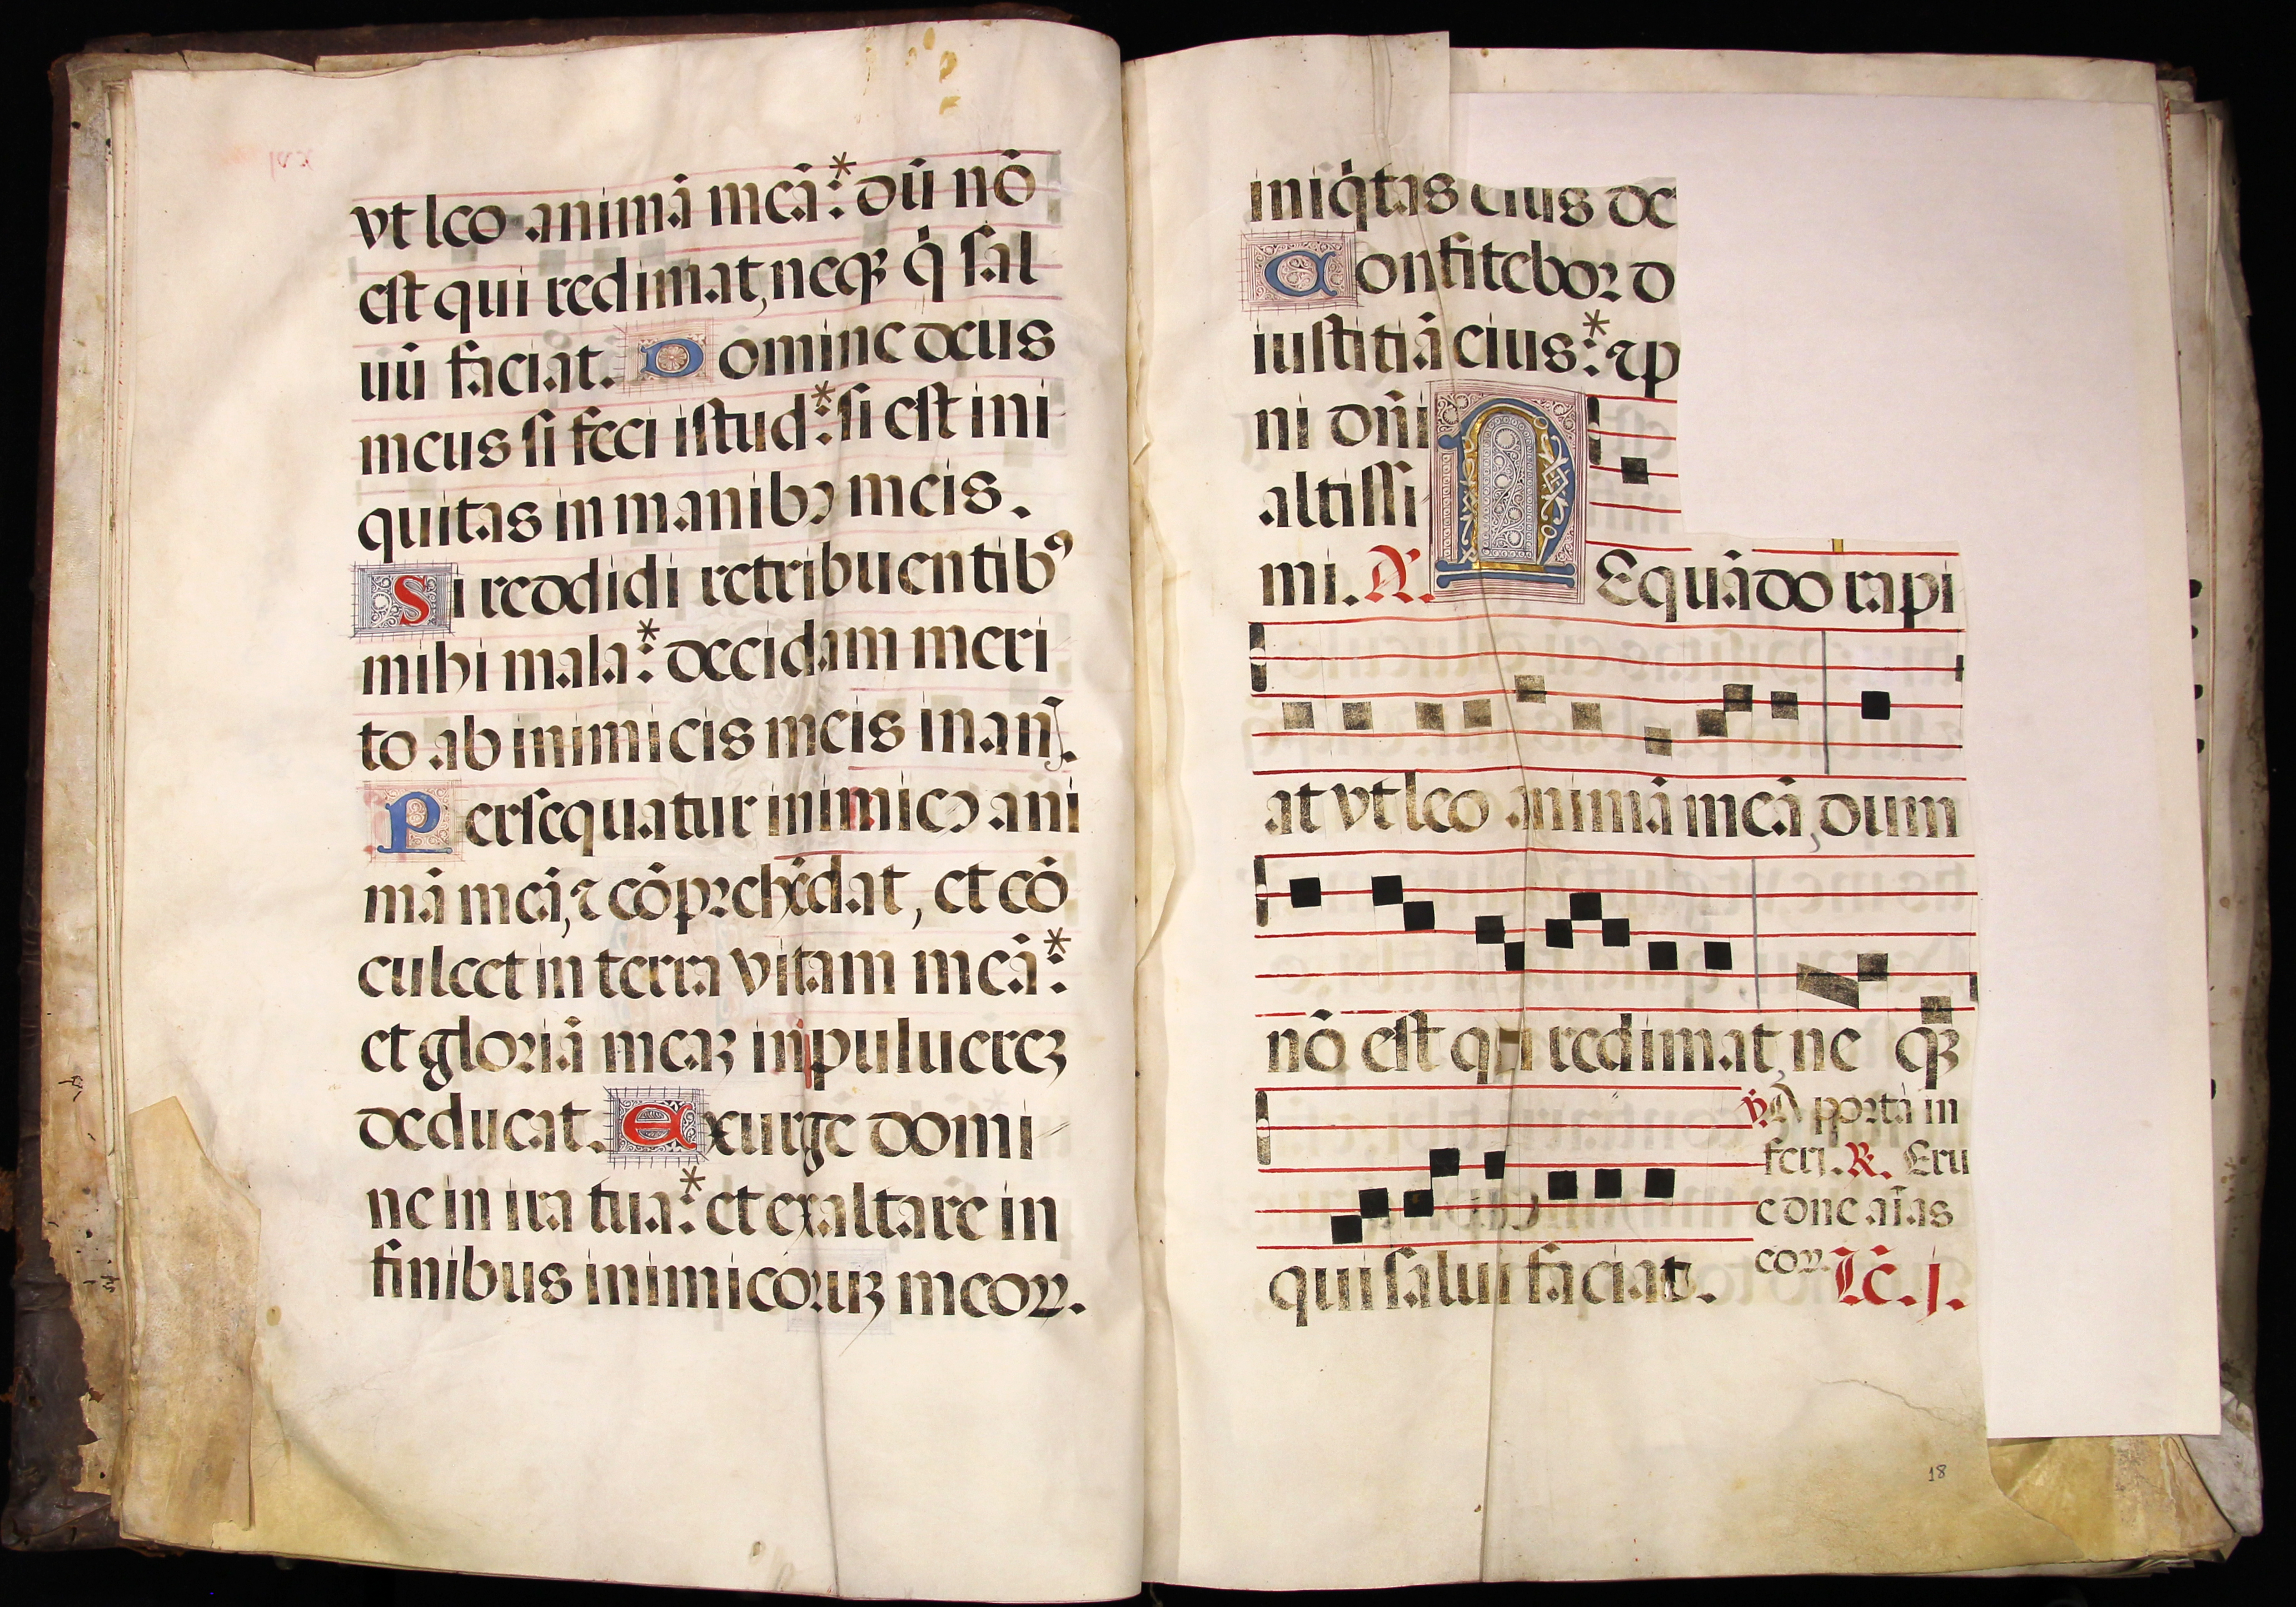 vt leo animā meā: * dū nō
est qui redimat, neqꝫ q̇ sal
uū faciat. Domine deus
meus si feci istud: * si est ini
quitas in manibꝰ meis.
Si reddidi retribuentibꝰ
mihi mala: * decidam meri
to ab inimicis meis inanj.
Persequatur inimicꝰ ani
mā meā, ⁊ cōpꝛehēdat, et cō
culcet in terra vitam meā: *
et gloꝛiā meaꝫ in puluereꝫ
deducat. Exurge domi
ne in ira tua: * et exaltare in
finibus inimicoꝛuꝫ meoꝝ.
iniq̇tas eius de
Confiteboꝛ d
iustitiā eius: * ⁊ p
ni dn̄i
altissi
mi. A.
NEquādo rapi
at vt leo animā meā, dum
nō est qui redimat, ne qꝫ
qui saluū faciat.
℣. A poꝛta in
ferj. ℟. Eru
e dn̄e aīas
eoꝝ. Lc̄. j.
18